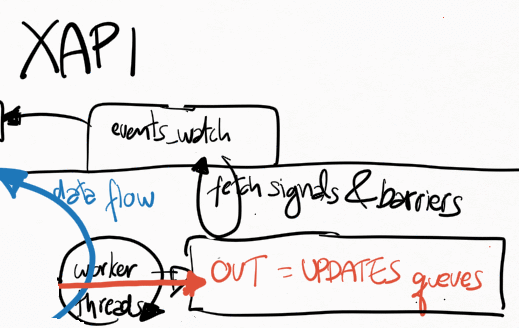 XAPI
events_watch
data flow
fetch signals & barriers
worker
threads
OUT = UPDATES queues